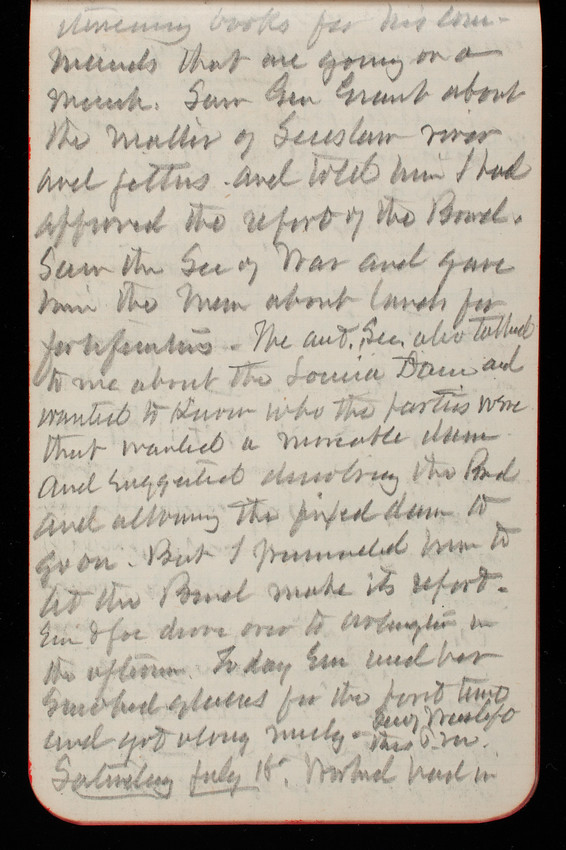 books for his com-
mands that are going on a
march. Saw Gen Grant about
the matter of Siuslaw river
and jetties. and told him I had
approved the report of the Board.
Saw the Sec of War and gave
him the Mem about lands for
fortifications. The Sec. also talked
to me about the Louisa Dam and
wanted to know who the parties were
that wanted a moveable dam
and suggested dissolving the Board
and allowing the fixed dam to
go on. But I persuaded him to
let the Board make its report.
Em & Joe drove over to Arlington in
the afternoon. Today Em used her
glasses for the first time
and got along nicely.
this P.M.
Saturday July 18. Worked hard in